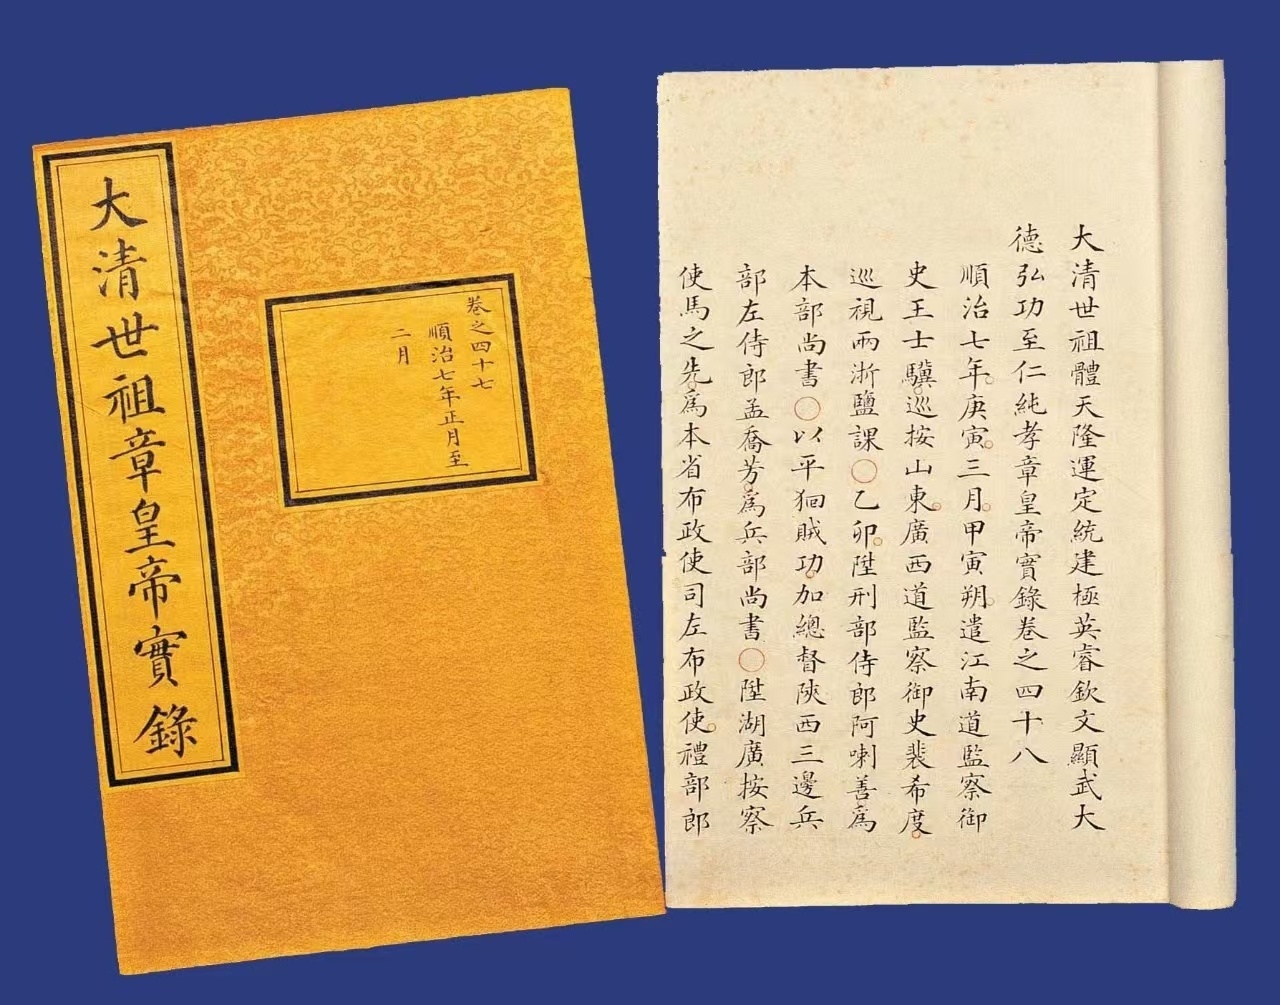 大清世祖章皇帝實錄
卷之四十七
順治七年正月至
二月
大清世祖體天隆運定統建極英睿欽文顯武大
德弘功至仁純孝章皇帝實錄卷之四十八
順治七年。庚寅。三月。甲寅朔。遣江南道監察御
史王士驥。巡按山東。廣西道監察御史裴希度。
巡視兩浙鹽課○乙卯。陞刑部侍郎阿喇善為
本部尚書○以平狥賊功。加總督陝西三邊兵
部左侍郎孟喬芳。為兵部尚書○陞湖廣按察
使馬之先。為本省布政使司左布政使。禮部郎